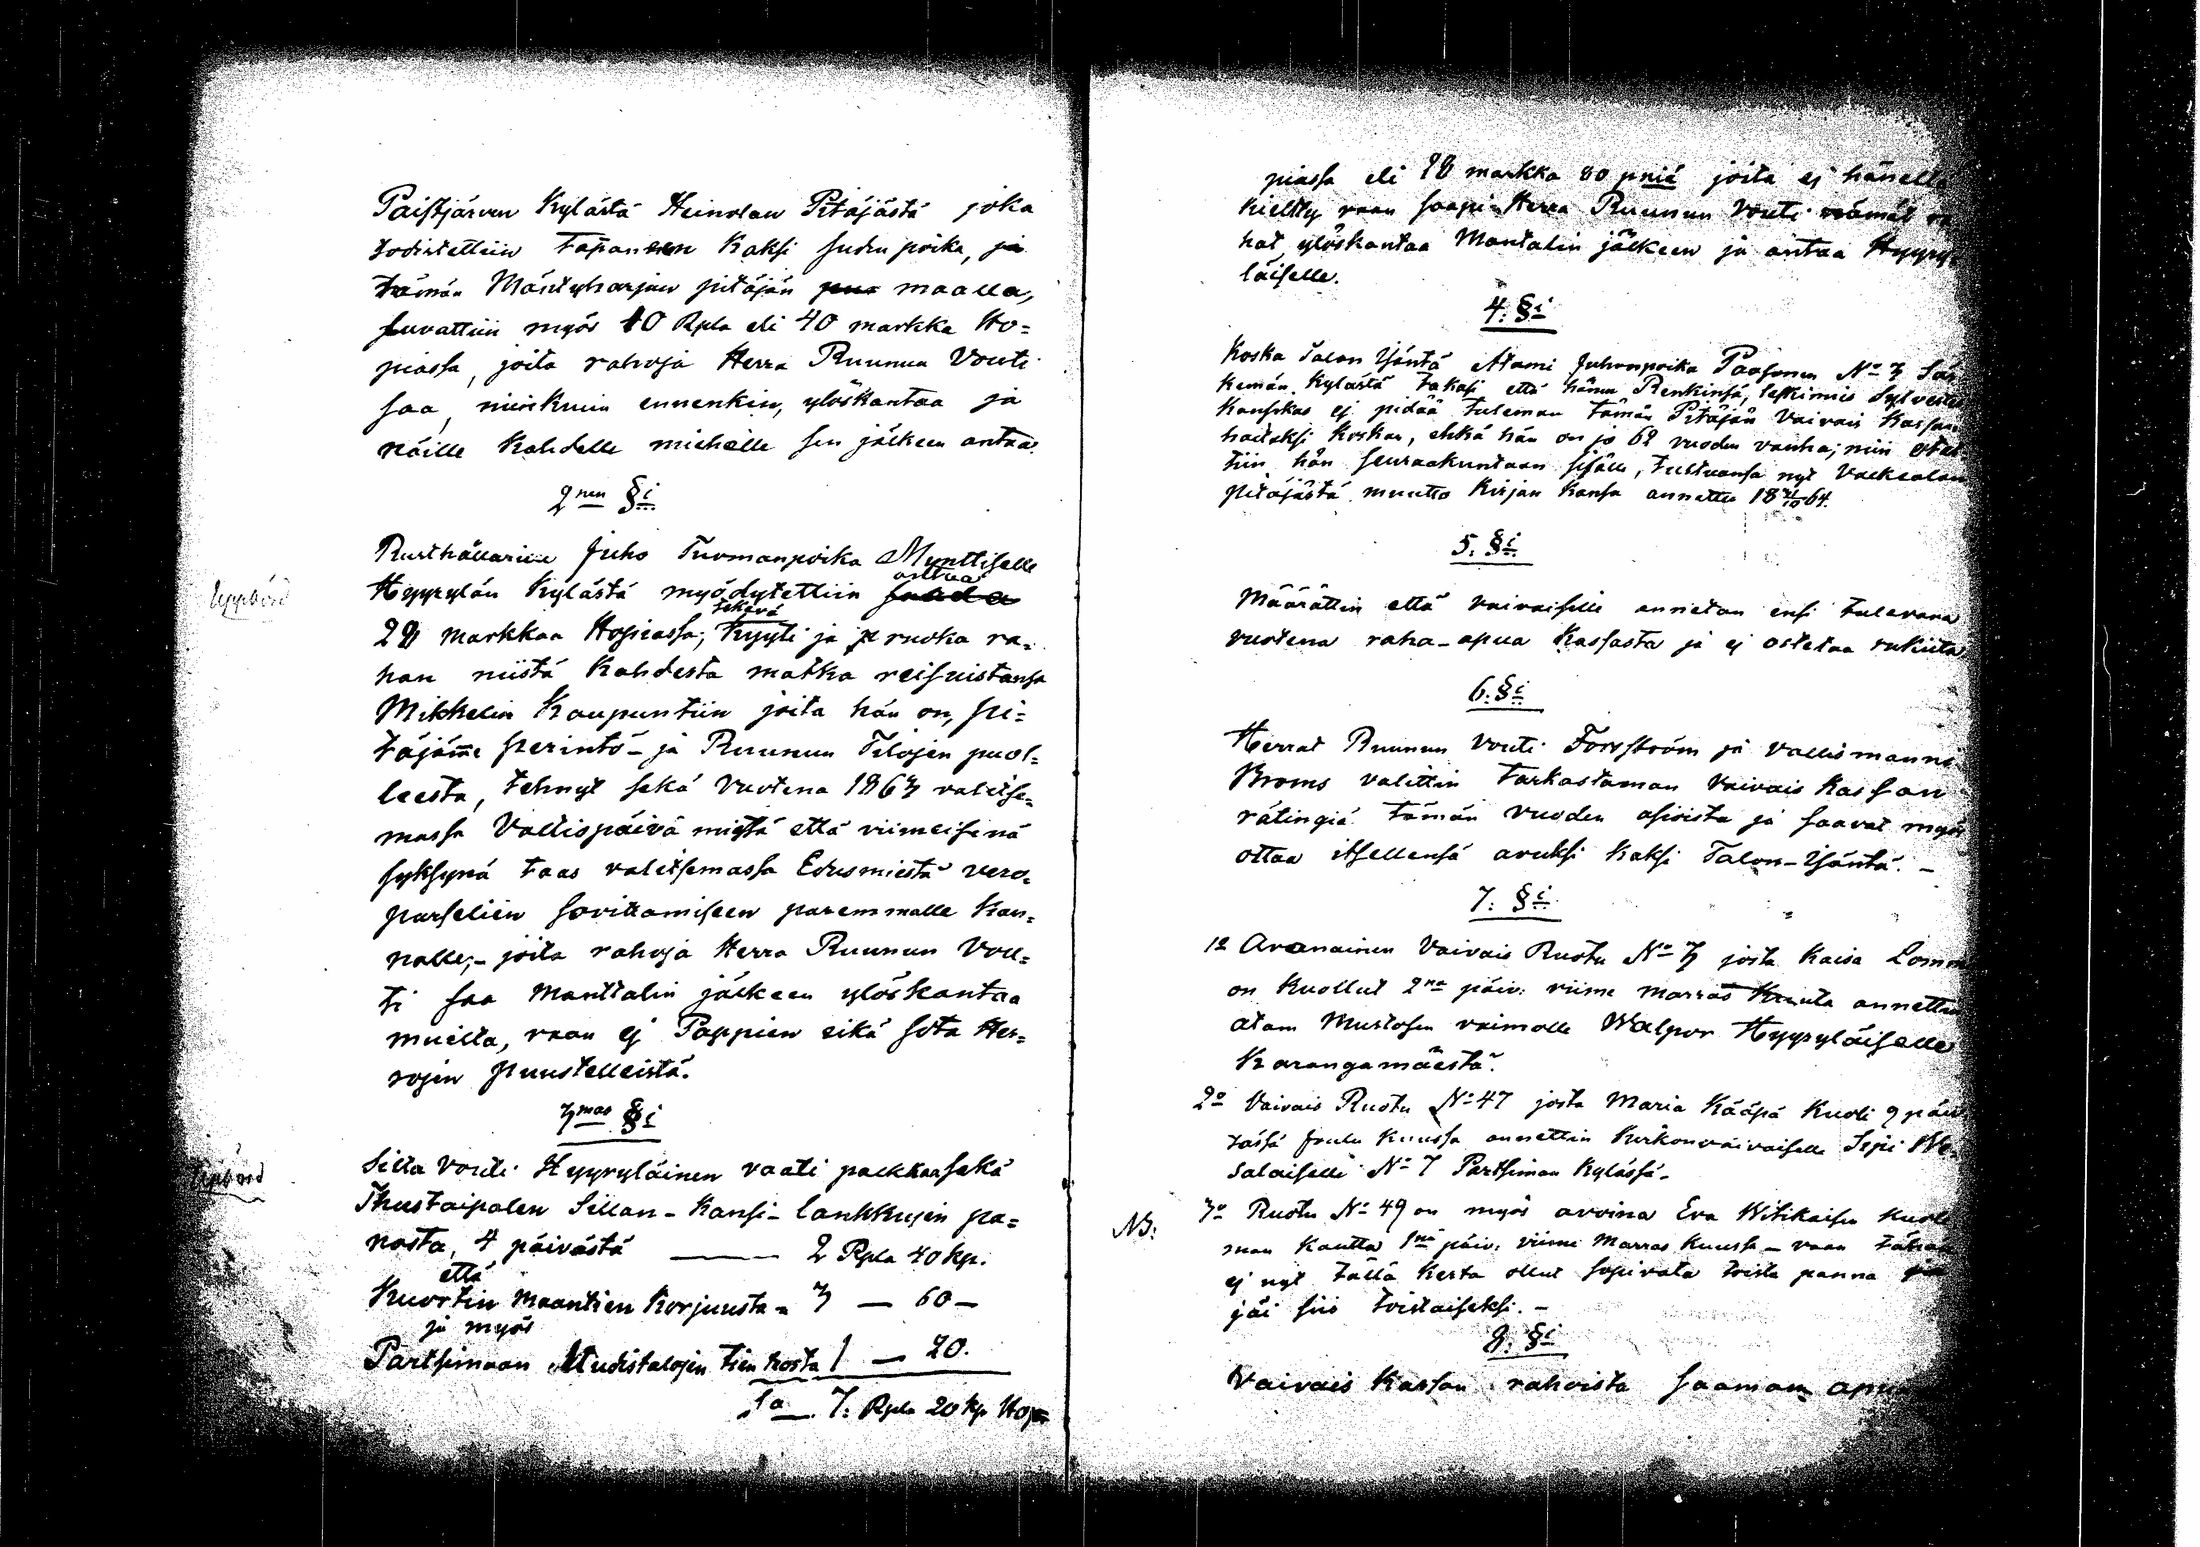 Paistjärven Kylästä Heinolan Pitäjästä joka
todistettiin tapaneen kaksi suden poika, ja
tämän Mäntyharjun pitäjän maalla,
luvattiin myös 10 Rpla eli 40 markka Ho=
piassa, joita rahoja Herra Ruunun Vouti
saa, niinkuin ennenkin, ylöskantaa ja
näille Kahdelle miehelle sen jälkeen antaa.
2nen §i
Rusthållarille Juho Tuomanpoika Mynttiselle
Uppbörd
Hyyrylän Kylästä myödytettiin ottaa
28 markkaa Hopiassa, sekä Kyyti ja ruoka ra=
han niistä Kahdesta matka reisuistansa
Mikkelin Kaupuntiin joita hän on, pi=
täjämme perintö- ja Ruunun Tilojen puol=
lesta, tehnyt sekä Vuotena 1863 valitse=
massa Valtispäivä miestä että viimeisenä
syksynä taas valitsemassa Edusmiestä vero=
parselien sovittamiseen paremmalle kan=
nalle;- joita rahoja Herra Ruunun Vou=
ti saa Manttalin jälkeen ylöskantaa
muilta, vaan ej Pappien eikä sota Her=
rojen puustelleistä.
3mas §i
Silta vouti Hyyryläinen vaati palkkaa sekä
Uppbörd
Thustaipalen Sillan-Kansi-lankkujen pa=
nosta, 4 päivästä — 2 Rpla 40 kp.
että
Kuortin maantien Korjuusta = 3 — 60 —
ja myös
Partsimaan Uudistalojen tien kosta 1 — 20.
Sa 7: Rpla 20 kp Hop=
piassa eli 28 markka 80 pniä joita ej hänellä
kieltty vaan saapi Herra Ruunun Vouti nämät ra
hat ylöskantaa Mantalin jälkeen ja antaa Hyyry=
läiselle.
4: §i
Koska Talon Isäntä Atami Juhonpoika Paasonen No 3 Sär
kemän Kylästä takasi että hänen Renkinsä, leskimies Sylvester
Kansikas ej pidää tuleman tämän Pitäjän Vaivais Kassan
haitaksi koskan, ehkä hän on jo 62 vuoden vanha; niin otet
tiin hän seuraakuntaan sisälle, tultuansa nyt Valkealan
Pitäjästä muutto Kirjan kansa annettu 1864.
5. §i
Määrättiin että vaivaisille annetan ensi tulevana
vuotena raha-apua Kassasta ja ej osteta rukiita
6: §i
Herrat Ruunun Vouti Forsström ja Vallesmanni
Broms valittin tarkastaman Vaivais Kassan
rätingiä tämän vuoden asioista ja saavat myös
ottaa itsellensä avuksi kaksi Talon-Isäntä. —
7: §i
1o Avonainen Vaivais Ruotu No 3 josta Kaisa Lomm
on kuollut 2na päiv: viime marras kuuta annettan
Atam Mustosen vaimolle Walpor Hyyryläiselle
Karangamäestä.
2o Vaivais Ruotu No 47 josta Maria Kääpä kuoli 9 päiv
tässä Joulu kuussa annettiin Kirkonvaivaiselle Sepi We=
salaiselle No 7 Partsiman Kylässä.
NB:
3o Ruotu No 49 on myös avoina Eva Witikaisen kuole
man kautta 1nä päiv: viime Marras kuussa — vaan tähän
ej nyt tällä kerta ollut sopivata toista panna
jäi siis toistaiseksi. —
8. §i
Vaivais Kassan rahoista saaman apu